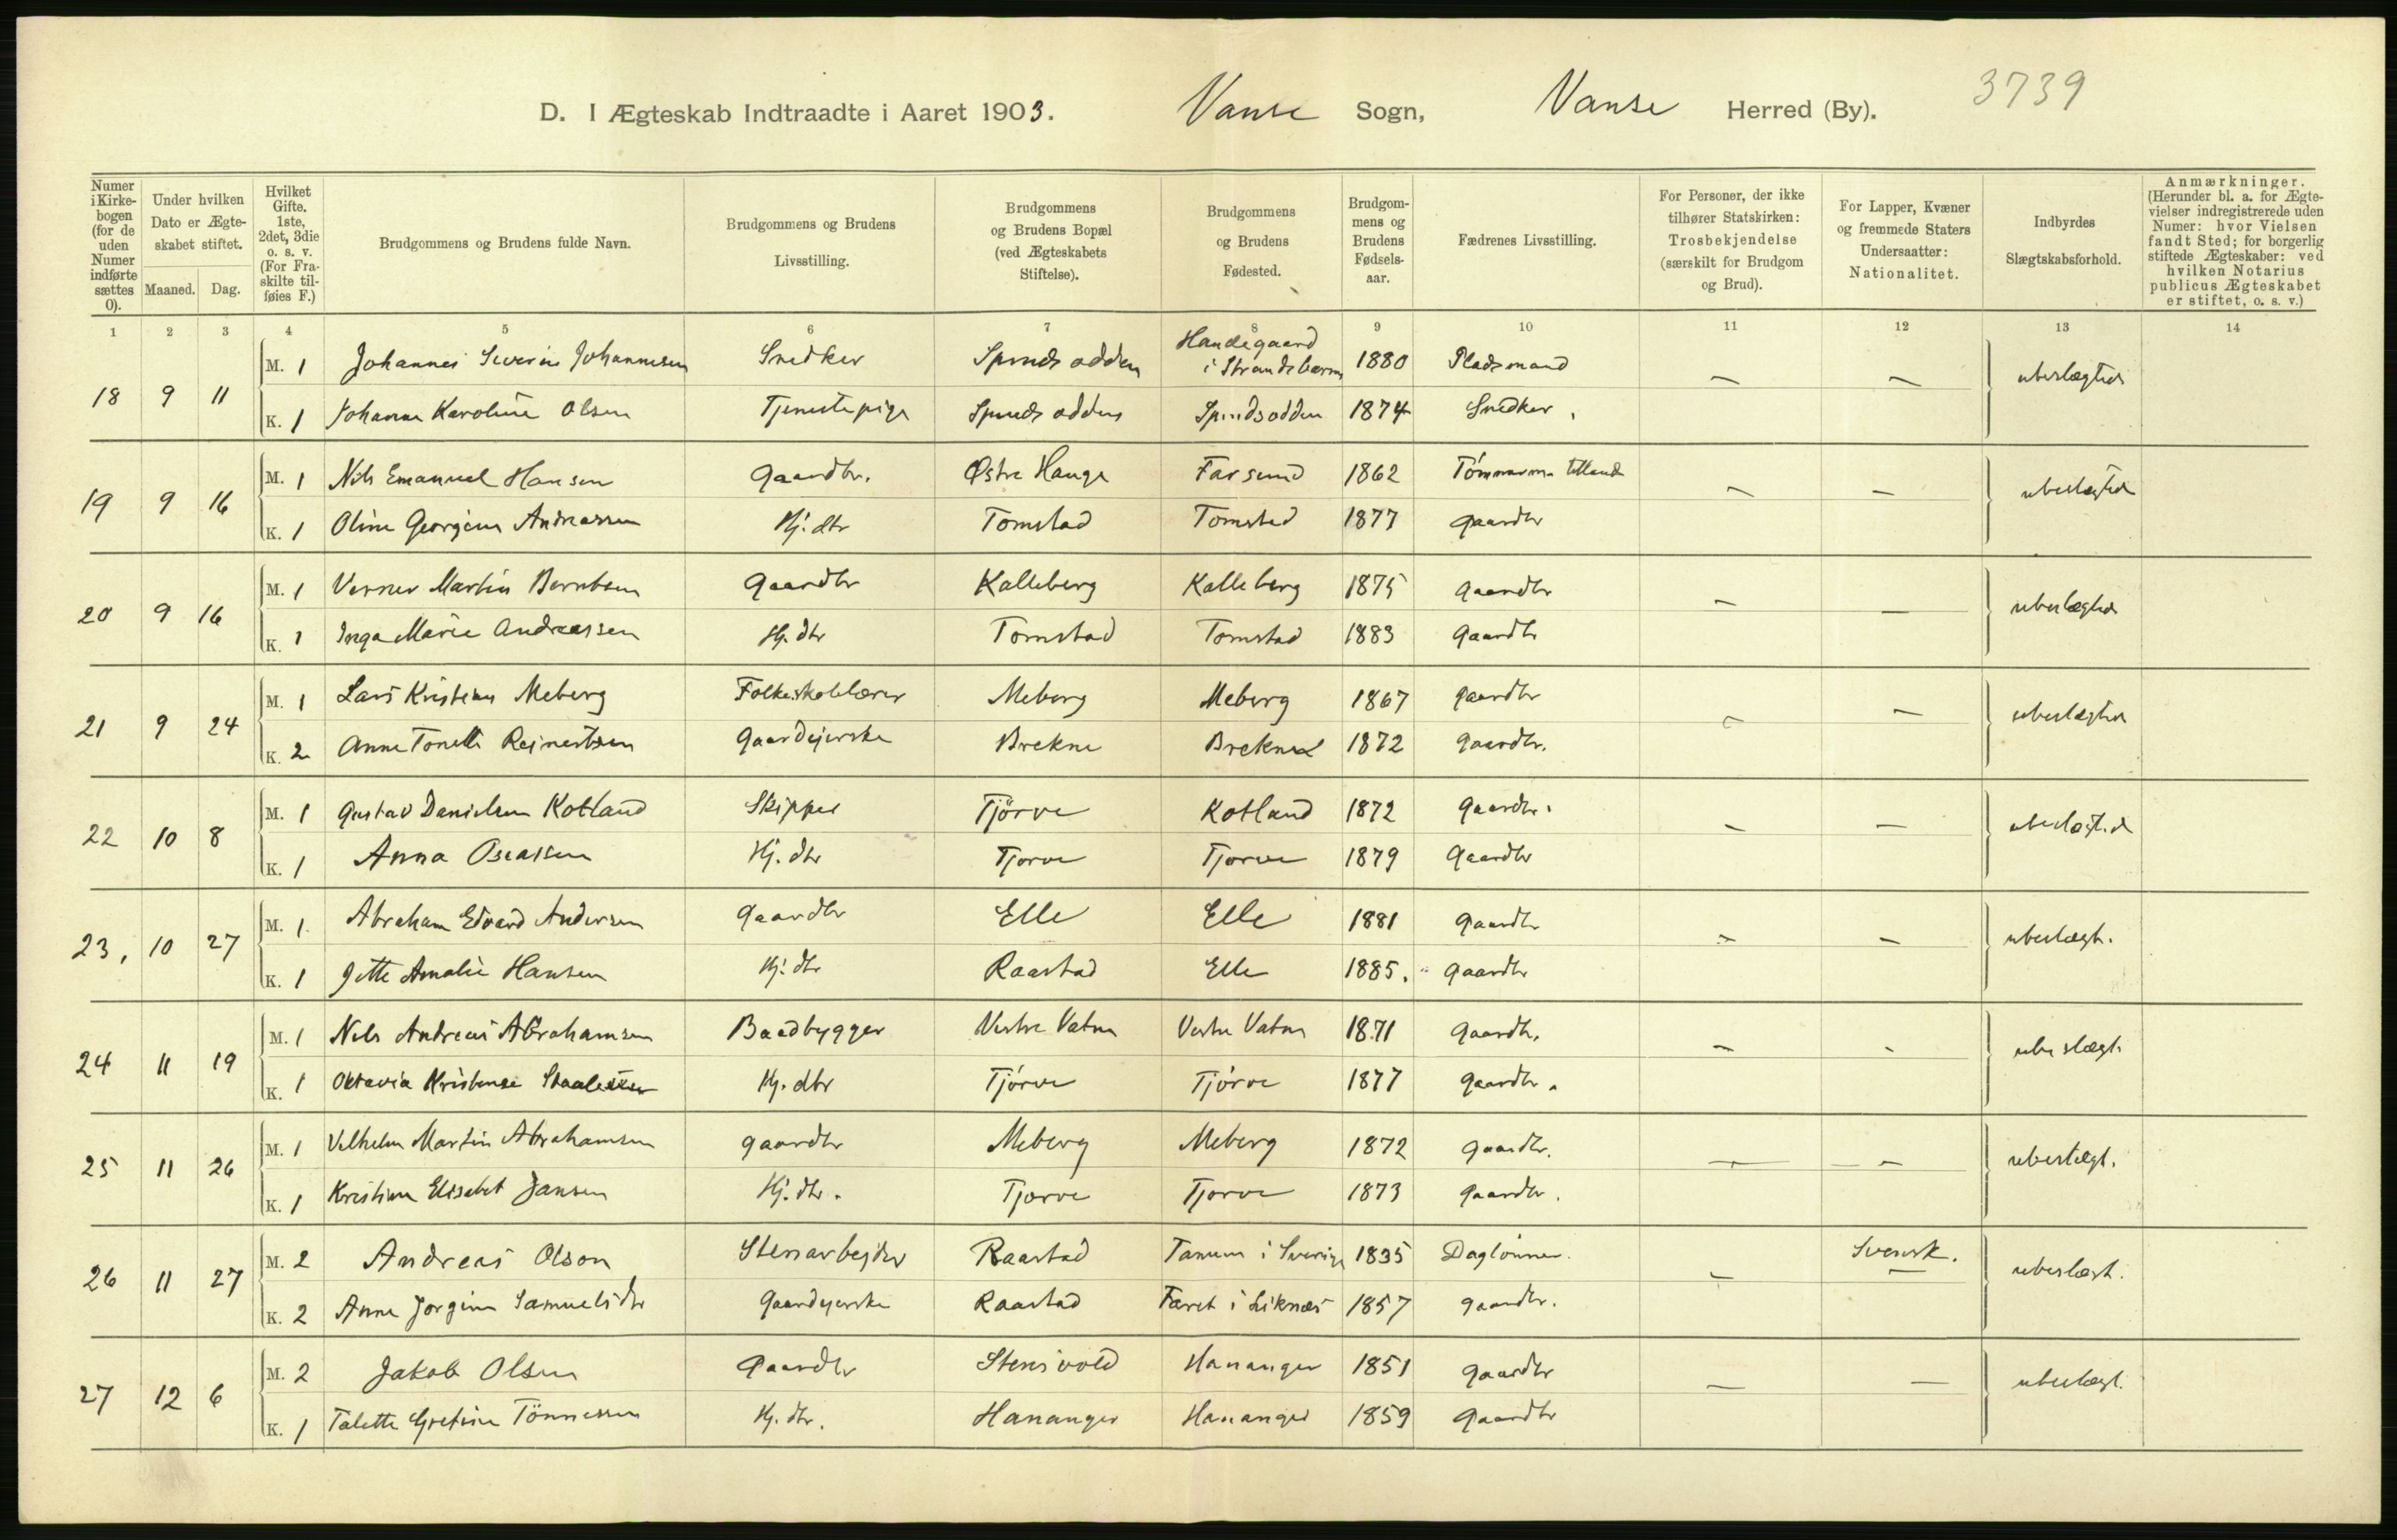 3739
D. I Ægteskab Indtraadte i Aaret 1903. Vanse Sogn, Vanse Herred (By).
Numer i Kirkebogen (for de uden Numer indførte sættes 0).
Under hvilken Dato er Ægteskabet stiftet.
Maaned. Dag.
Hvilket Gifte. 1ste, 2det, 3die o. s. v. (For Fraskilte tilføies F.)
Brudgommens og Brudens fulde Navn.
Brudgommens og Brudens Livsstilling.
Brudgommens og Brudens Bopæl (ved Ægteskabets Stiftelse).
Brudgommens og Brudens Fødested.
Brudgommens og Brudens Fødselsaar.
Fædrenes Livsstilling.
For Personer, der ikke tilhører Statskirken: Trosbekjendelse (særskilt for Brudgom og Brud).
For Lapper, Kvæner og fremmede Staters Undersaatter: Nationalitet.
Indbyrdes Slægtskabsforhold.
Anmærkninger. (Herunder bl. a. for Ægtevielser indregistrerede uden Numer: hvor Vielsen fandt Sted; for borgerlig stiftede Ægteskaber: ved hvilken Notarius publicus Ægteskabet er stiftet, o. s. v.)
1 2 3 4 5 6 7 8 9 10 11 12 13 14
18 9 11 M. 1 Johannes Severin Johannesen Snedker Spindsodden i Strandebarm 1880 Pladsmand — — ubeslægted
K. 1 Johanne Karoline Olsen Tjenestepige Spindsodden Spindsodden 1874 Snedker
19 9 16 M. 1 Nils Emanuel Hansen Gaardbr. Østre Hauge Farsund 1862 Tømmerm. — — ubeslægted
K. 1 Oline Georgine Andreassen Hj. dtr Tomstad Tomstad 1877 Gaardbr
20 9 16 M. 1 Verner Martin Berntsen Gaardbr Kalleberg Kalleberg 1875 Gaardbr — — ubeslægted
K. 1 Inga Marie Andreassen Hj. dtr Tomstad Tomstad 1883 Gaardbr
21 9 24 M. 1 Lars Kristian Meberg Folkeskolelærer Meberg Meberg 1867 Gaardbr — — ubeslægted
K. 2 Anne Tonette Reinertsen Gaardejerske Brekne Brekne 1872 Gaardbr.
22 10 8 M. 1 Gustav Danielsen Kotland Skipper Tjörve Kotland 1872 Gaardbr. — — ubeslægted
K. 1 Anna Oseassen Hj. dtr Tjorve Tjorve 1879 Gaardbr
23, 10 27 M. 1 Abraham Edvard Andersen Gaardbr Elle Elle 1881 Gaardbr — — ubeslægt.
K. 1 Jette Amalie Hansen Hj. dtr Raastad Elle 1885. Gaardbr
24 11 19 M. 1 Nils Andreas Abrahamsen Baadbygger Vestre Vatne Vestre Vatne 1871 Gaardbr. — - ubeslægt.
K. 1 Oktavia Kristense Staalesen Hj. dtr Tjörve Tjörve 1877 Gaardbr.
25 11 26 M. 1 Vilhelm Martin Abrahamsen Gaardbr Meberg Meberg 1872 Gaardbr. — — ubeslægt.
K. 1 Kristine Elisabet Jansen Hj. dtr. Tjorve Tjorve 1873 Gaardbr.
26 11 27 M. 2 Andreas Olson Stenarbejder Raastad Tanum i Sverige 1835 Daglönner. — Svensk. — ubeslægt.
K. 2 Anne Jorgine Samuelsdtr Gaardejerske Raastad i Liknæs 1857 Gaardbr.
27 12 6 M. 2 Jakob Olsen Gaardbr Stensvold Hananger 1851 Gaardbr — — ubeslægt.
K. 1 Talette Tönnessen Hj. dtr. Hananger Hananger 1859 Gaardbr